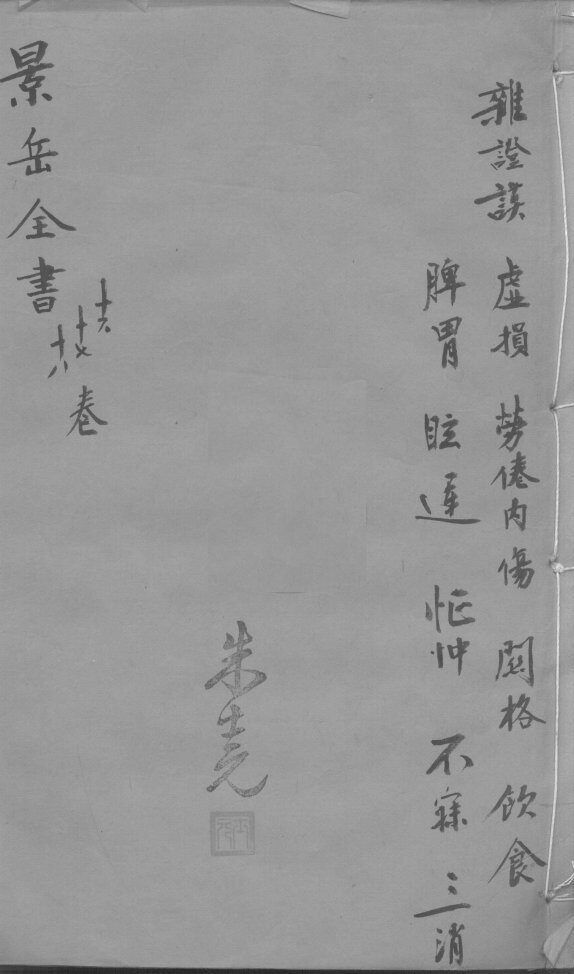 雜證謨 虛損 勞倦內傷 関格 飲食
脾胃 眩運 怔忡 不寐 三消
朱堯
景岳全書
十六
十七
十八
卷